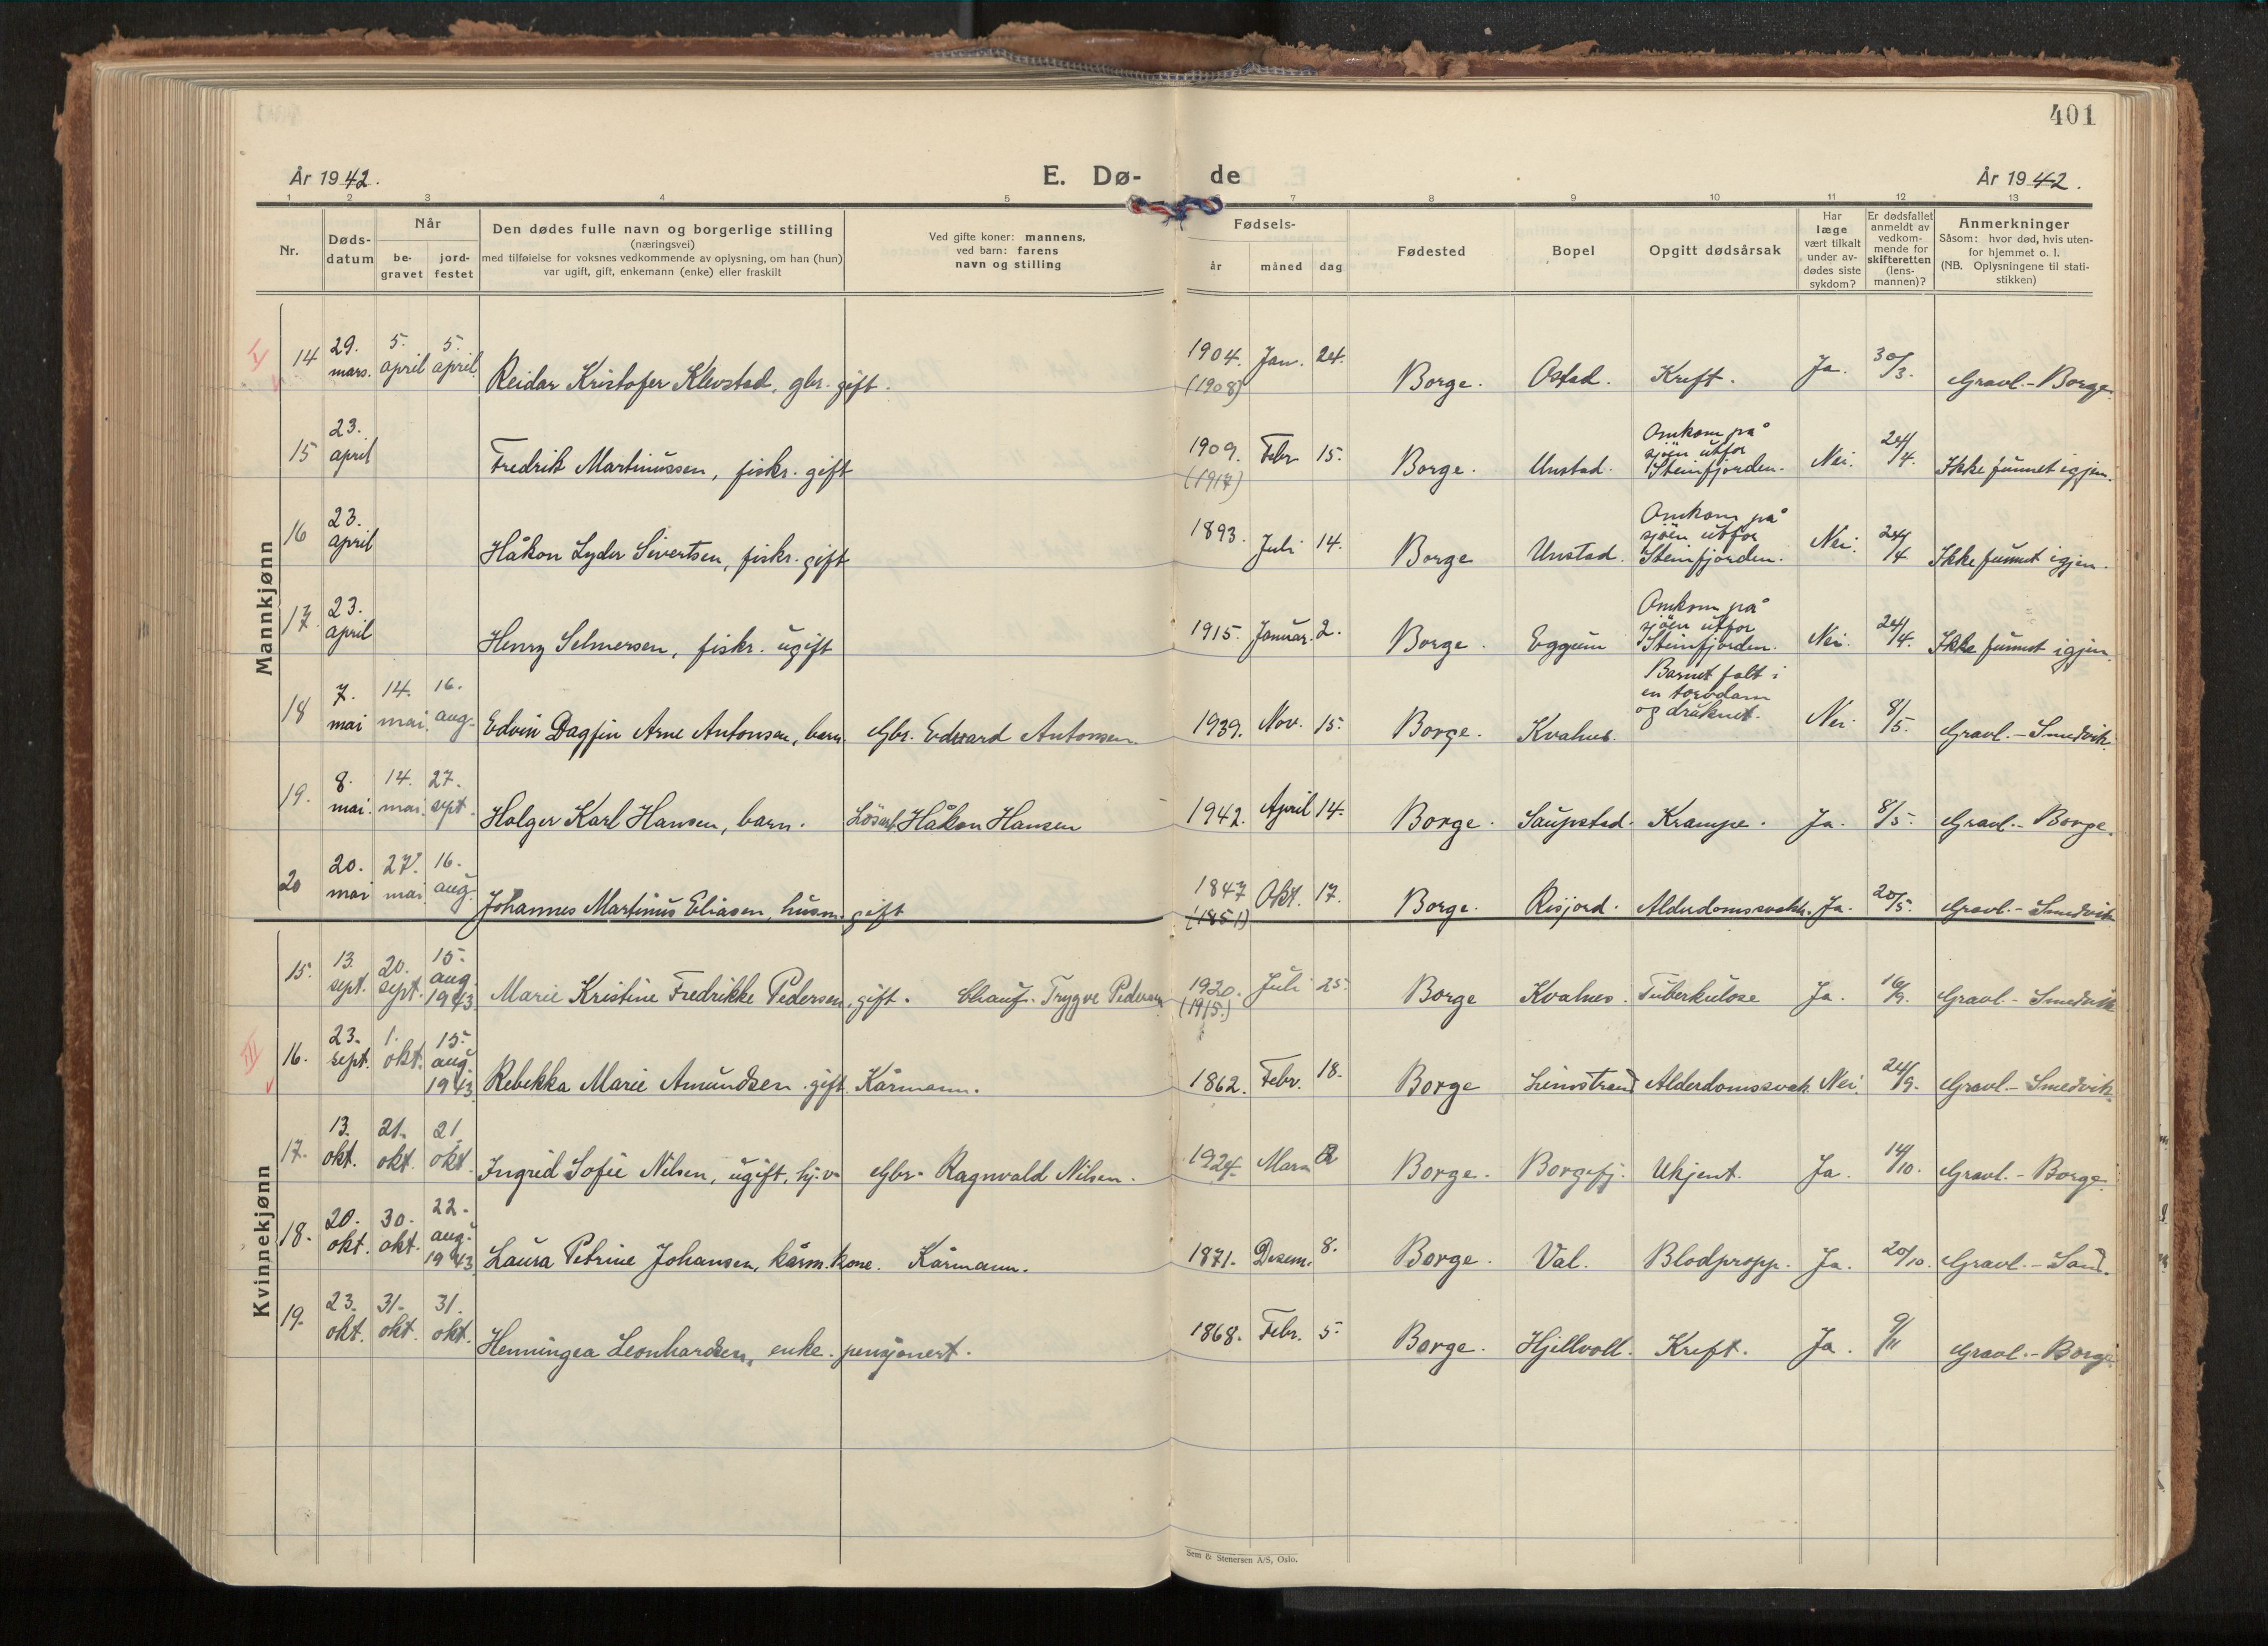 401
År 1942.
E. Dø- de
År 1942.
1 2 3 4 5 7 8 9 10 11 12 13
Nr.
Døds-
datum
Når
be-
gravet
jord-
festet
Den dødes fulle navn og borgerlige stilling
(næringsvei)
med tilføielse for voksnes vedkommende av oplysning, om han (hun)
var ugift, gift, enkemann (enke) eller fraskilt
Ved gifte koner: mannens,
ved barn: farens
navn og stilling
Fødsels-
år måned dag
Fødested
Bopel
Opgitt dødsårsak
Har
læge
vært tilkalt
under av-
dødes siste
sykdom?
Er dødsfallet
anmeldt av
vedkom-
mende for
skifteretten
(lens-
mannen)?
Anmerkninger
Såsom: hvor død, hvis uten-
for hjemmet o. l.
(NB. Oplysningene til stati-
stikken)
Mannkjønn
14 29. mars. 5. april 5. april Reidar Kristofer Klevstad, gbr. gift. 1904. (1908) Jan. 24. Borge. Ostad. Kreft. Ja. 30/3. Gravl. - Borge.
15 23. april Fredrik Martinussen, fiskr. gift 1909. (1917) Febr 15. Borge. Unstad. Omkom på sjöen utfor Steinfjorden. Nei. 24/4. Ikke funnet igjen.
16 23. april Håkon Lyder Sivertsen, fiskr. gift 1893. Juli 14. Borge Unstad. Omkom på sjöen utfor Steinfjorden. Nei. 24/4 Ikke funnet igjen.
17. 23. april Henry Selmersen, fiskr. ugift 1915. Januar. 2. Borge. Eggum Omkom på sjöen utfor Steinfjorden. Nei. 24/4. Ikke funnet igjen.
18 7. mai 14. mai. 16. aug. Edvin Dagfin Arne Antonsen, barn. Gbr. Edvard Antonsen. 1939. Nov. 15. Borge. Kvalnes. Barnet falt i en torvdam og druknet. Nei. 8/5. Gravl. - Smedvik.
19. 8. mai. 14. mai. 27. sept. Holger Karl Hansen, barn. Lösarb. Håkon Hansen 1942. April 14. Borge. Saupstad. Krampe. Ja. 8/5. Gravl. - Borge.
20 20. mai 27. mai. 16. aug. Johannes Martinus Eliasen, husm. gift 1847 (1851) Okt. 17. Borge. Risjord. Alderdomssvakh. Ja. 20/5. Gravl. - Smedvik
Kvinnekjønn
15. 13. sept. 20. sept. 15. aug. 1943. Marie Kristine Fredrikke Pedersen, gift. Chauf. Trygve Pedersen 1920. (1915.) Juli 25. Borge Kvalnes. Tuberkulose Ja. 16/9. Gravl. - Smedvik
16. 23. sept. 1. okt. 15. aug. 1943. Rebekka Marie Amundsen. gift. Kårmann. 1862. Febr. 18. Borge Limstrand Alderdomssvak. Nei. 24/9. Gravl. - Smedvik.
17. 13. okt. 21. okt. 21. okt. Ingrid Sofie Nilsen, ugift, hj.v. Gbr. Ragnvald Nilsen. 1924. Mars 2 Borge. Borgefj. Ukjent. Ja. 14/10. Gravl. - Borge.
18. 20. okt. 30. okt. 22. aug. 1943. Laura Petrine Johansen, kårm. kone. Kårmann. 1871. Desem. 8. Borge. Val. Blodpropp. Ja. 20/10. Gravl. - Sand.
19. 23. okt. 31. okt. 31. okt. Henningea Leonhardsen, enke. pensjonert. 1868. Febr. 5. Borge. Hjellvoll. Kreft. Ja. 9/11 Gravl. - Borge.
Sem & Stenersen A/S, Oslo.